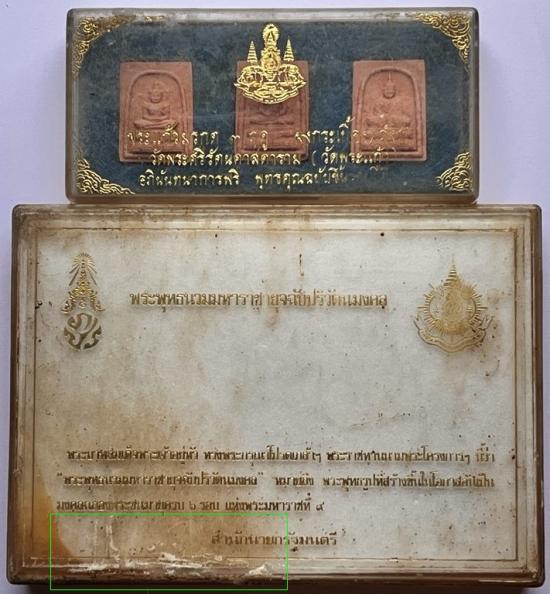 พระแก้วมรกต ๓ ฤดู
วัดพระศรีรัตนศาสดาราม (วัดพระแก้ว)
อภินันทนาการฟรี พุทธคุณฉบับ
พระพุทธนวมมหาราชายุจฉปริวัตนมงคล
พระบาทสมเด็จพระเจ้าอยู่หัว ทรงพระกรุณาโปรดเกล้าฯ พระราชทานนามพระโครงการฯ นี้ว่า
"พระพุทธนวมมหาราชายุจฉปริวัตนมงคล" หมายถึง พระพุทธรูปที่สร้างขึ้นในโอกาสอันเป็น
มงคลฉลองพระชนมายุครบ ๖ รอบ แห่งพระมหาราชที่ ๙
สำนักนายกรัฐมนตรี